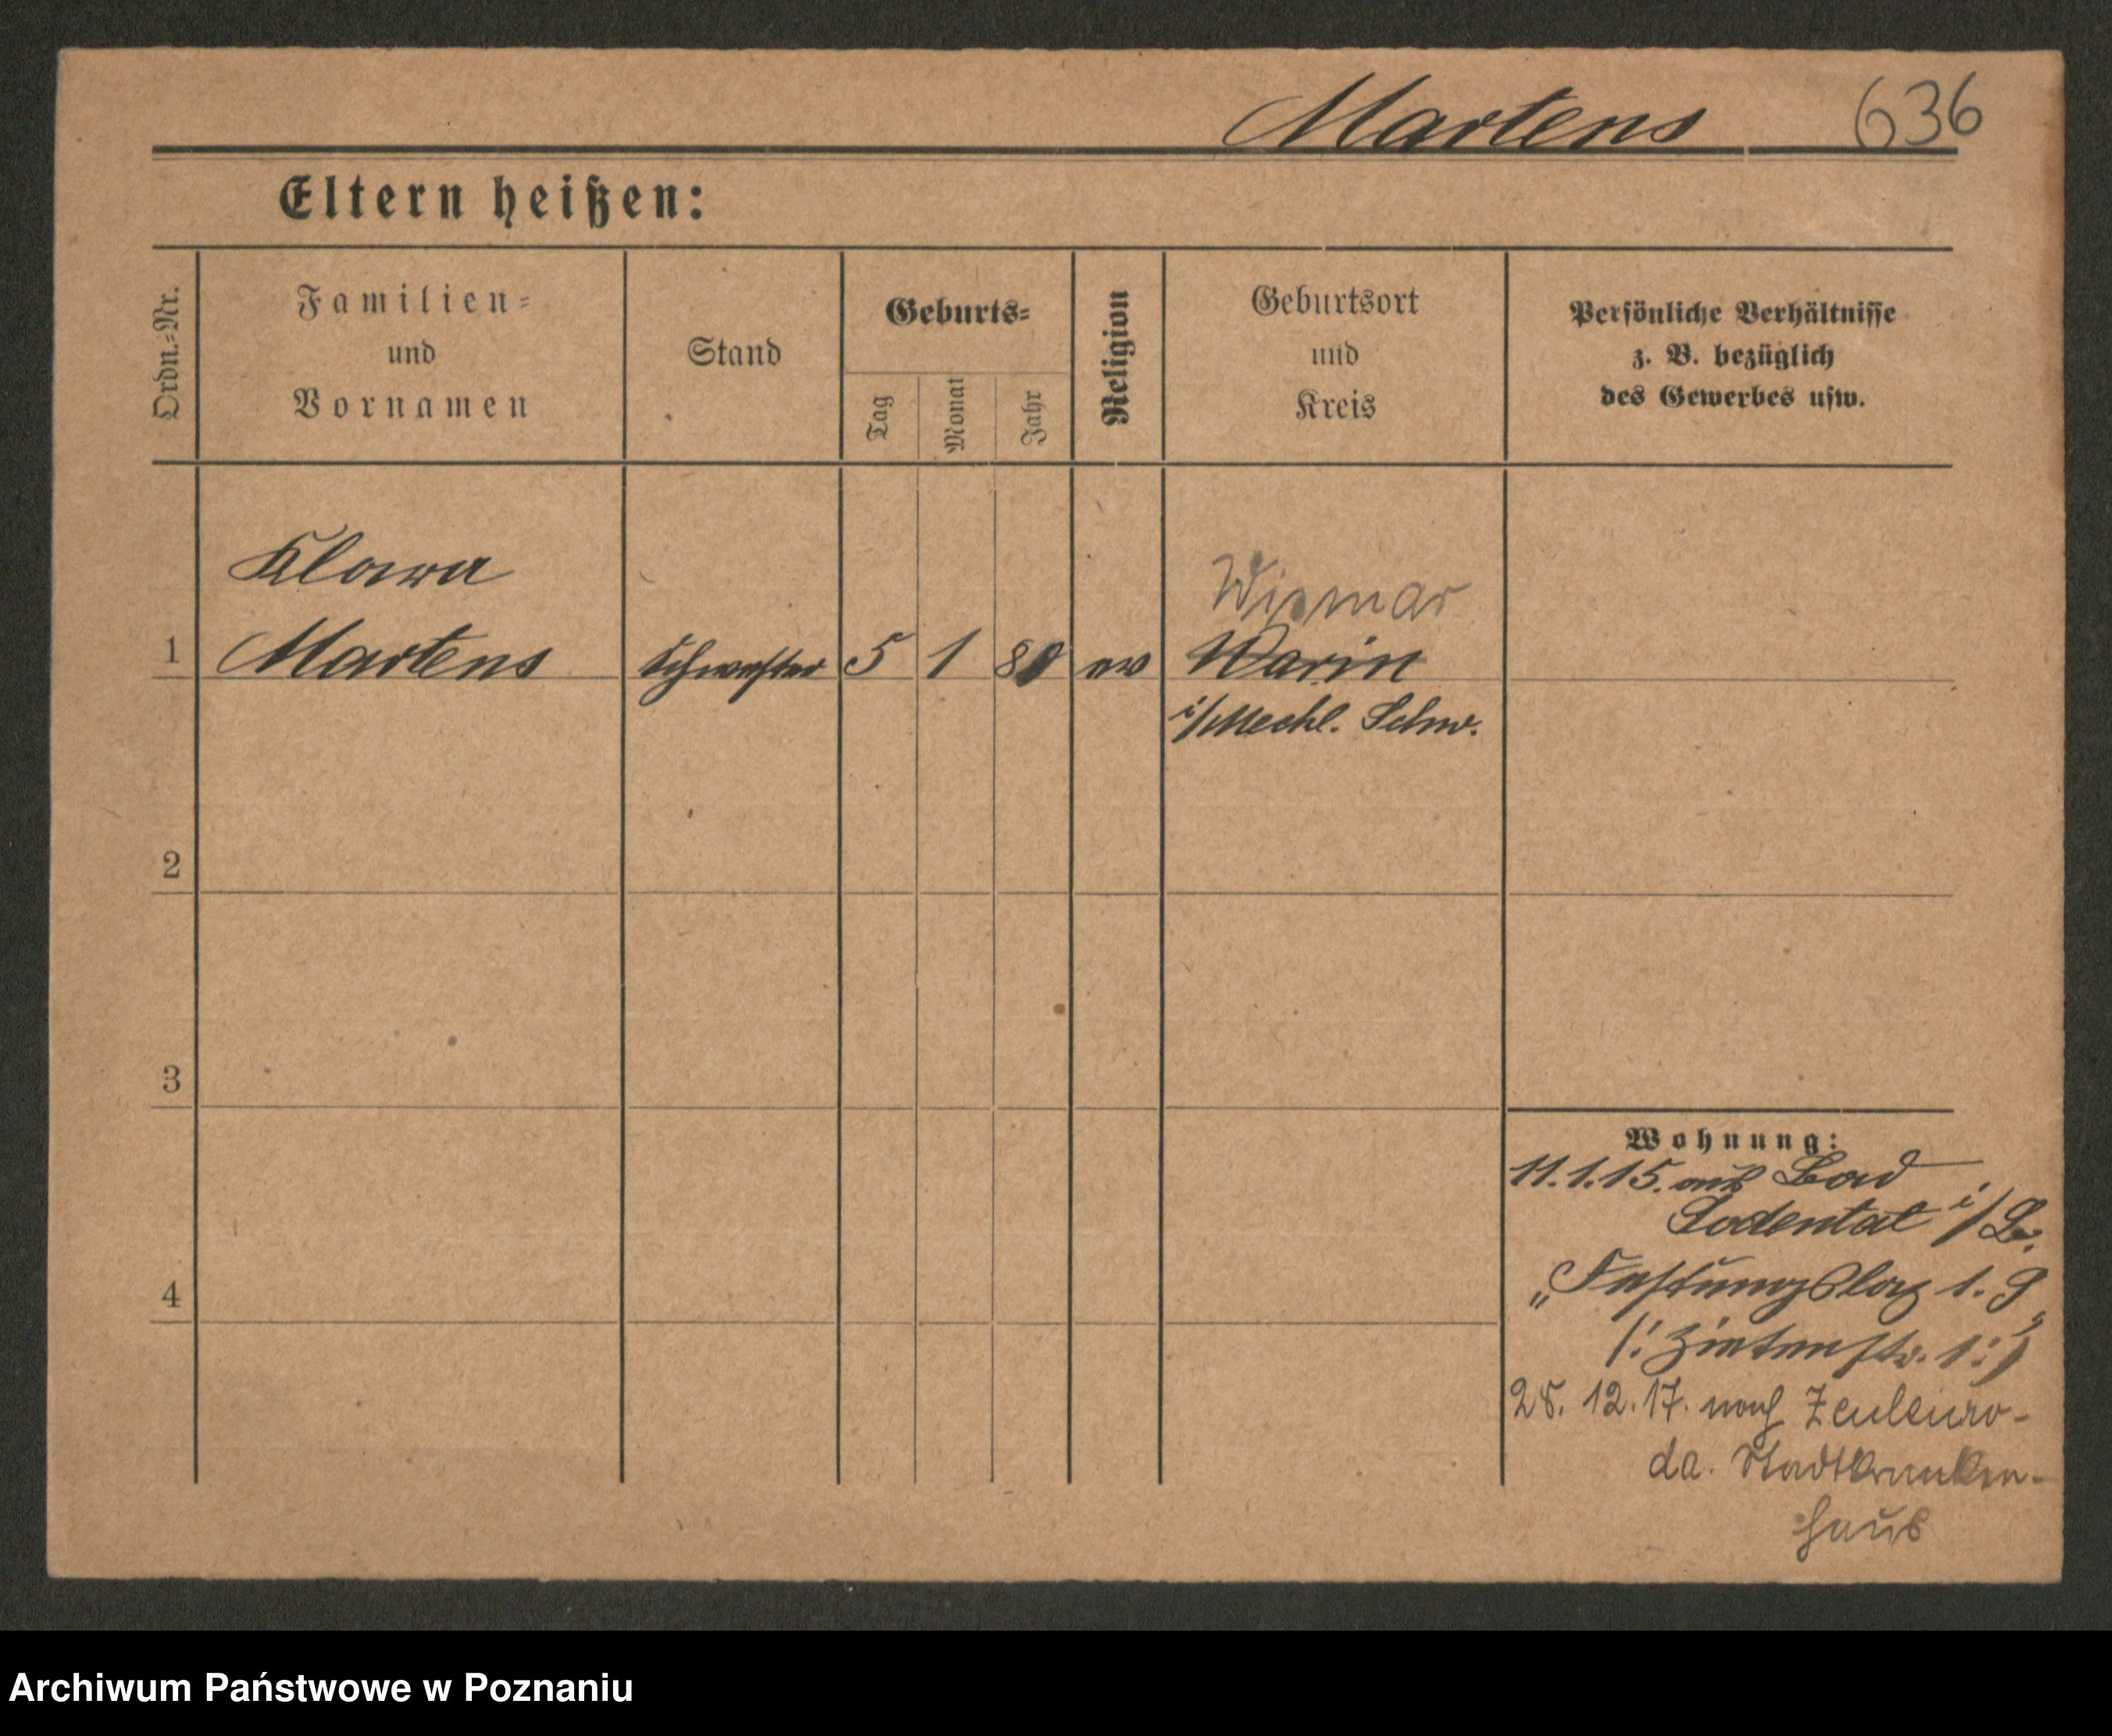 Martens 636
Eltern heißen:
Ordn.-Nr.
Familien-
und
Vornamen
Stand
Geburts-
Tag
Monat
Jahr
Religion
Geburtsort
und
Kreis
Persönliche Verhältnisse
z. B. bezüglich
des Gewerbes usw.
Klara
Wismar
1 Martens Schwester 5 1 80 ev Warin
i/Meckl. Schw.
2
3
4
Wohnung:
11.1.15. aus Bad
i/
„Festungslaz 1. P„
/: Zietenstr. 1 :/
28. 12. 17. nach Zeulenro-
da. Stadtkranken-
haus
Archiwum Państwowe w Poznaniu